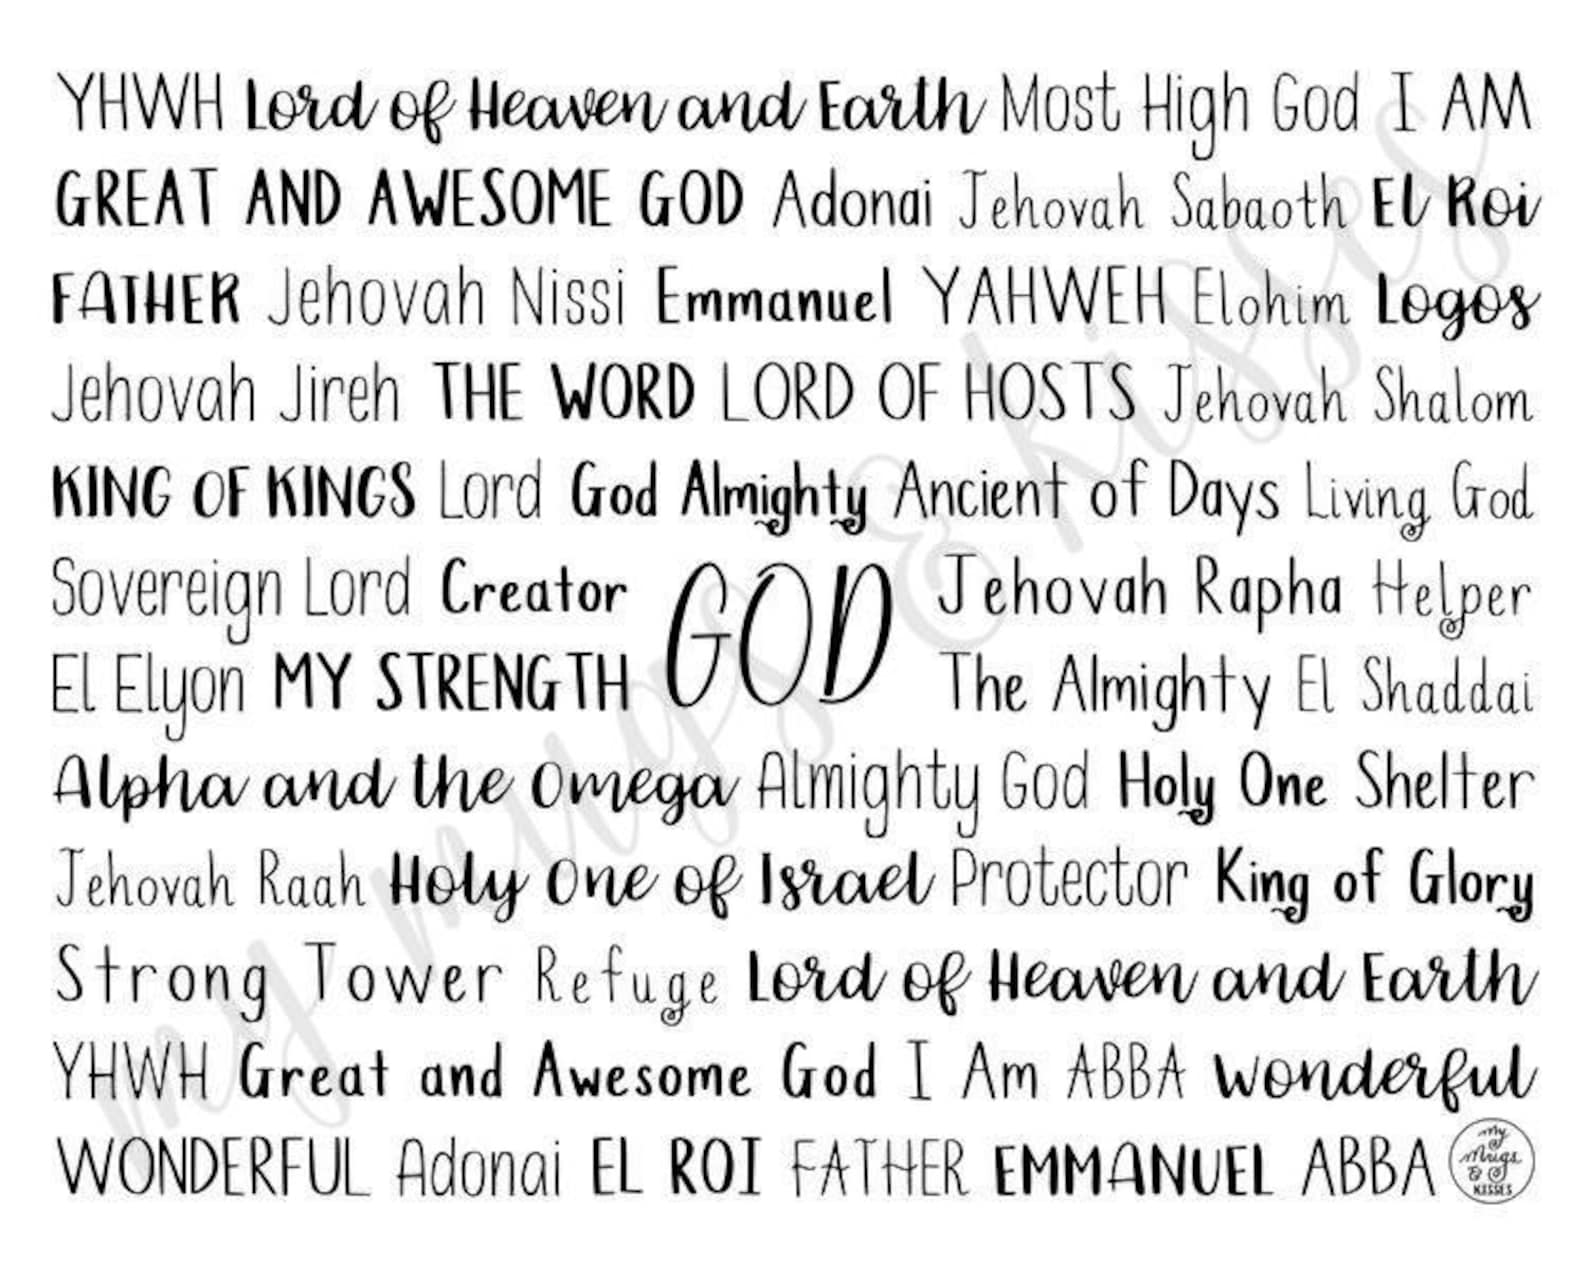 YHWH Lord of Heaven and Earth Most High God I AM
GREAT AND AWESOME GOD Adonai Jehovah Sabaoth El Roi
FATHER Jehovah Nissi Emmanuel YAHWEH Elohim Logos
Jehovah Jireh THE WORD LORD OF HOSTS Jehovah Shalom
KING OF KINGS Lord God Almighty Ancient of Days Living God
Sovereign Lord Creator GOD Jehovah Rapha Helper
El Elyon MY STRENGTH The Almighty El Shaddai
Alpha and the Omega Almighty God Holy One Shelter
Jehovah Raah Holy One of Israel Protector King of Glory
Strong Tower Refuge Lord of Heaven and Earth
YHWH Great and Awesome God I Am ABBA Wonderful
WONDERFUL Adonai EL ROI FATHER EMMANUEL ABBA
my
mugs
&
KISSES
my mugs & kisses